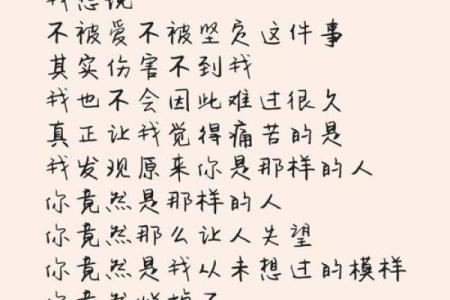 我想说
不被爱不被坚定这件事
其实伤害不到我
我也不会因此难过很久
真正让我觉得痛苦的是
我发观原来你是那样的人
你竟然是那样的人
你竟然那么让人失望
你竟然是我从未想过的模样
你竟然